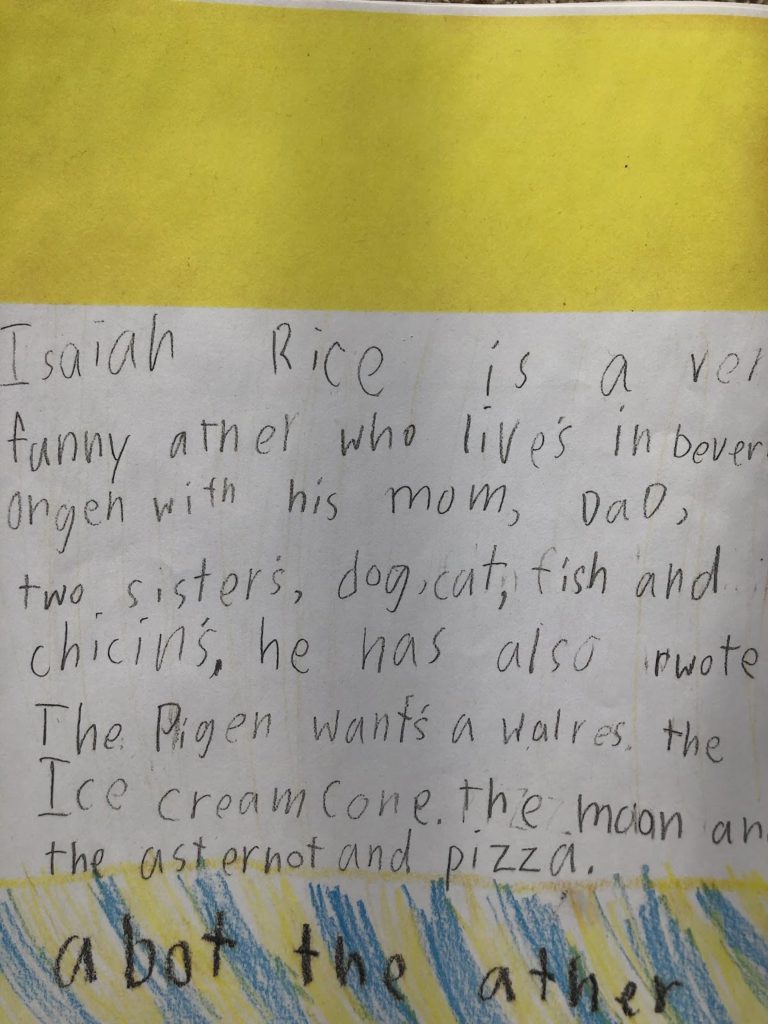 Isaiah Rice is a ver
funny ather who live's in bever
ongen with his mom, DaD,
two sister's, dog, cat, fish and
chicin's, he has also rwote
The Pigen want's a walres. the
Ice cream Cone. the moon an
the asternot and pizza.
abot the ather